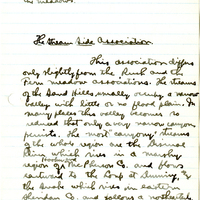 as meadows.
The Stream Side Association
This association differs
only slightly from the Rush and the
Fern meadow associations. The streams
of the Sand Hills usually occupy a narrow
valley with little or no flood plain. In
many places this valley becomes so
reduced that only a very narrow canyon
persists. The most "canyony" streams
of the whole region are the Dismal
River which rises in a marshy
of McPherson Co. and flows
eastward to the Loup at Dunning,
the Snake which rises in eastern
Sheridan Co. and follows a northeast